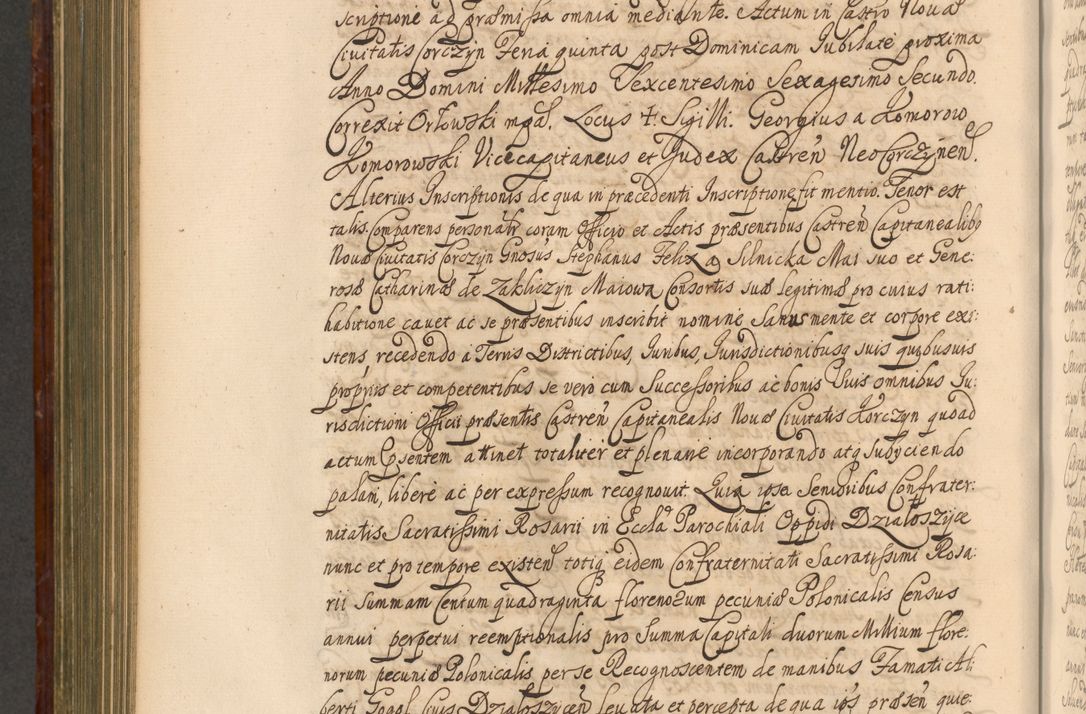 scriptione ad præmissa omnia mediante. Actum in Castro Novæ
Civitatis Corczyn Feria quinta post Dominicam Jubilate proxima
Anno Domini Millesimo Sexcentesimo Sexagesimo Secundo.
Correxit Orłowski mpa. Locus ‡ Sigilli. Georgius a Komorow
Komorowski Vicecapitaneus et Judex Castreñ NeoCorczyneñ.
Alterius Inscriptionis de qua in præcedenti Inscriptione fit mentio. Tenor est
talis. Comparens personalr coram Officio et Actis præsentibus Castreñ Capitanealibq
Novæ Civitatis Corczyn Gnosus Stephanus Felix a Silnicka Mai suo et Gene:
rosæ Catharinæ de Zakliczyn Maiowa Consortis suæ legitimæ pro cuius rati:
habitione cavet ac se præsentibus inscribit nomine Sanus mente et corpore exi:
stens, recedendo a Terris Districtibus, Juribus, Jurisdictionibusq suis quibusvis
propriis et competentibus se vero cum Successoribus ac bonis Suis omnibus Ju:
risdictioni Officii præsentis Castreñ Capitanealis Novæ Civitatis Korczyn quoad
actum psentem attinet totaliter et plenarie incorporando atq subyciendo
palam, libere ac per expressum recognovit. Quia ipse Senioribus Confrater:
nitatis Sacratissimi Rosarii in Eccla Parochiali Oppidi Działoszyce
nunc et pro tempore existeñ totiq eidem Confraternitati Sacratissimi Rosa:
rii Summam Centum quadraginta florenorum pecuniæ Polonicalis Census
annui perpetui reemptionalis pro Summa Capitali duorum Millium flore:
norum pecuniæ Polonicalis per se Recognoscentem de manibus Famati Al:
berti Gogol Civis Działoszyceñ levata et percepta de qua ips præseñ quie: